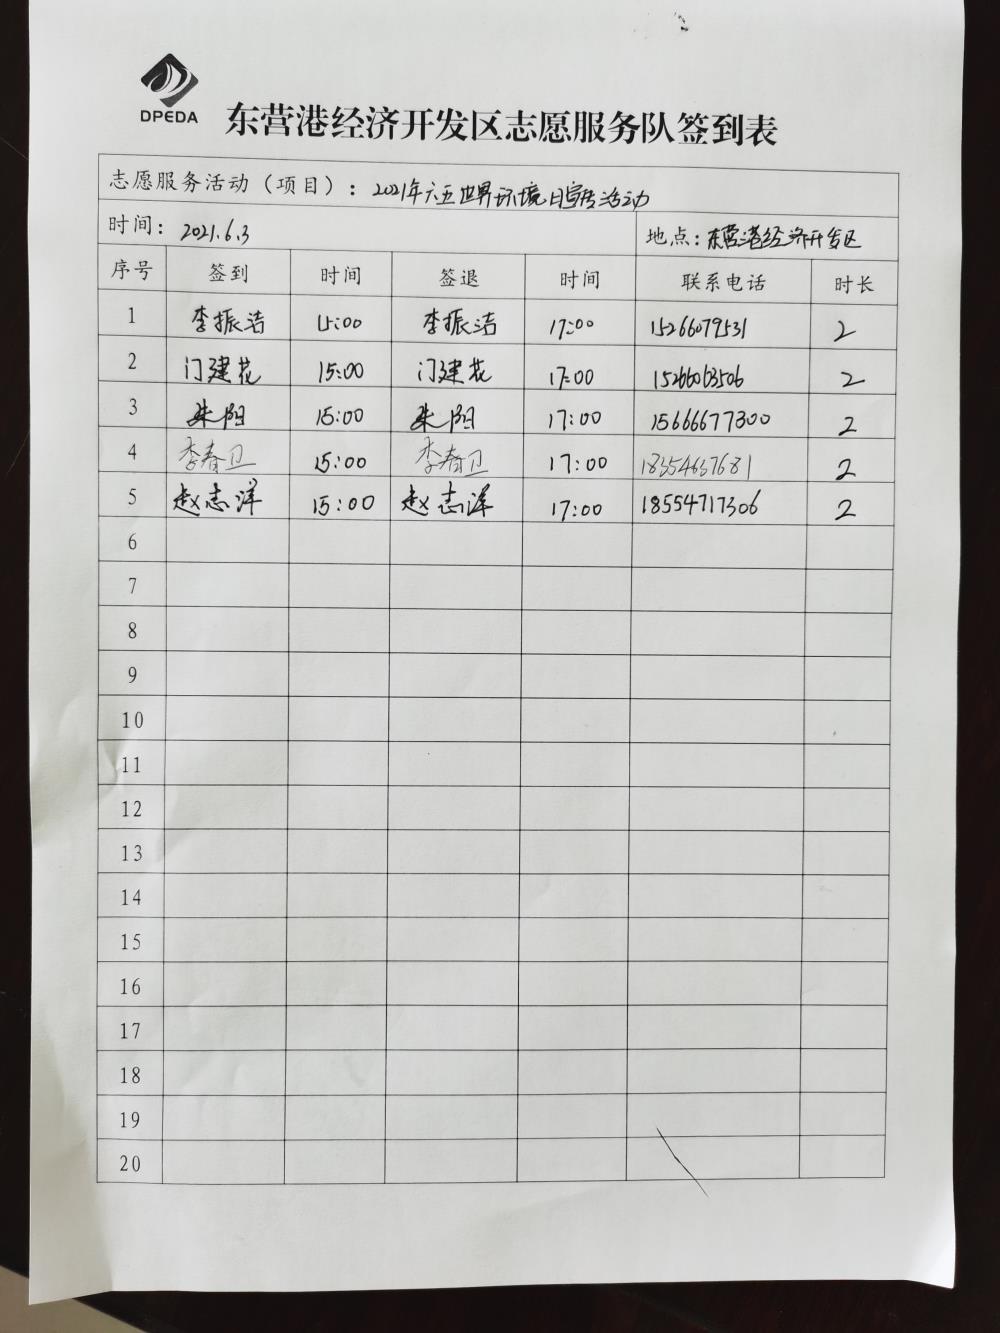 DPEDA
东营港经济开发区志愿服务队签到表
志愿服务活动（项目）：2021年六五世界环境日宣传活动
时间：2021.6.3 地点：东营港经济开发区
序号 签到 时间 签退 时间 联系电话 时长
1 李振洁 15:00 李振洁 17:00 15266079531 2
2 门建花 15:00 门建花 17:00 15266063506 2
3 朱阳 15:00 朱阳 17:00 15666677300 2
4 李春卫 15:00 李春卫 17:00 18354637681 2
5 赵志洋 15:00 赵志洋 17:00 18554717306 2
6
7
8
9
10
11
12
13
14
15
16
17
18
19
20